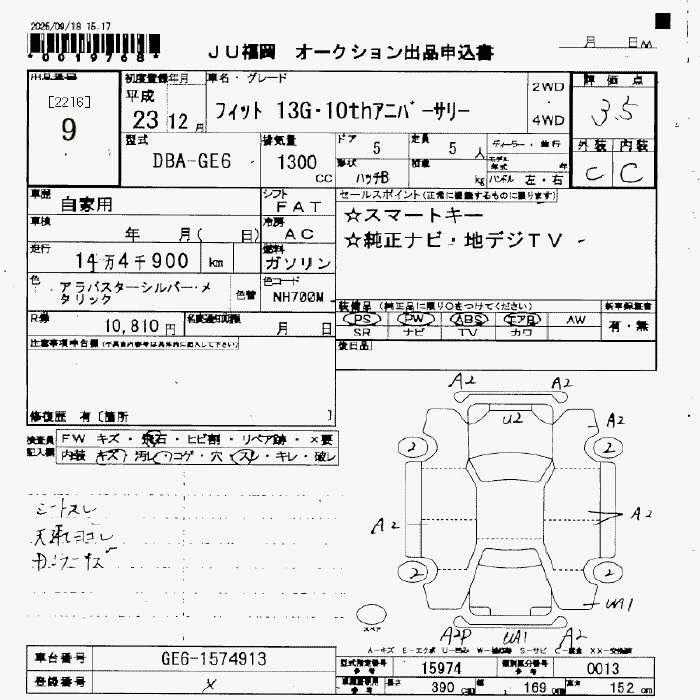 2025/09/18 15:17
*0019768*
JU福岡 オークション出品申込書
月 日
出品番号
[2216]
9
初度登録年月
平成
23 12月
車名・グレード
フィット 13G・10thアニバーサリー
2WD
・
4WD
評価点
3.5
外装 内装
C C
型式
DBA-GE6
排気量
1300
CC
ドア
5
定員
5 人
形状
ハッチB
積載
kg
ディーラー・並行
モデル年式 年
ハンドル 左・右
車歴
自家用
シフト
FAT
車検
年 月( 日)
冷房
AC
走行
14万4千900 km
燃料
ガソリン
色
アラバスターシルバー・メタリック
色替
色コード
NH700M
セールスポイント(正常に機能するものに限ります)
☆スマートキー
☆純正ナビ・地デジTV
R券
10,810 円
名変通知期限
月 日
装備品 (純正品に限り○をつけてください)
PS PW ABS エアB AW
SR ナビ TV カワ
新車保証書
有・無
後日品
注意事項申告欄
修復歴 有〔箇所 〕
検査員
記入欄
FW キズ・飛石・ヒビ割・リペア跡・×要
内装 キズ・汚レ・コゲ・穴・スレ・キレ・破レ
シートスレ
天張ヨゴレ
A2 A2
U2
A2
2 2
A2
A2
2 2
UA1
スペア
A2P UA1 A2
A-キズ E-エクボ U-凹ミ W-補修跡 S-サビ C-腐食 XX-交換済
車台番号
GE6-1574913
登録番号
×
型式指定番号
参考
15974
類別区分番号
参考
0013
長さ
390 cm
幅
169 cm
高さ
152 cm